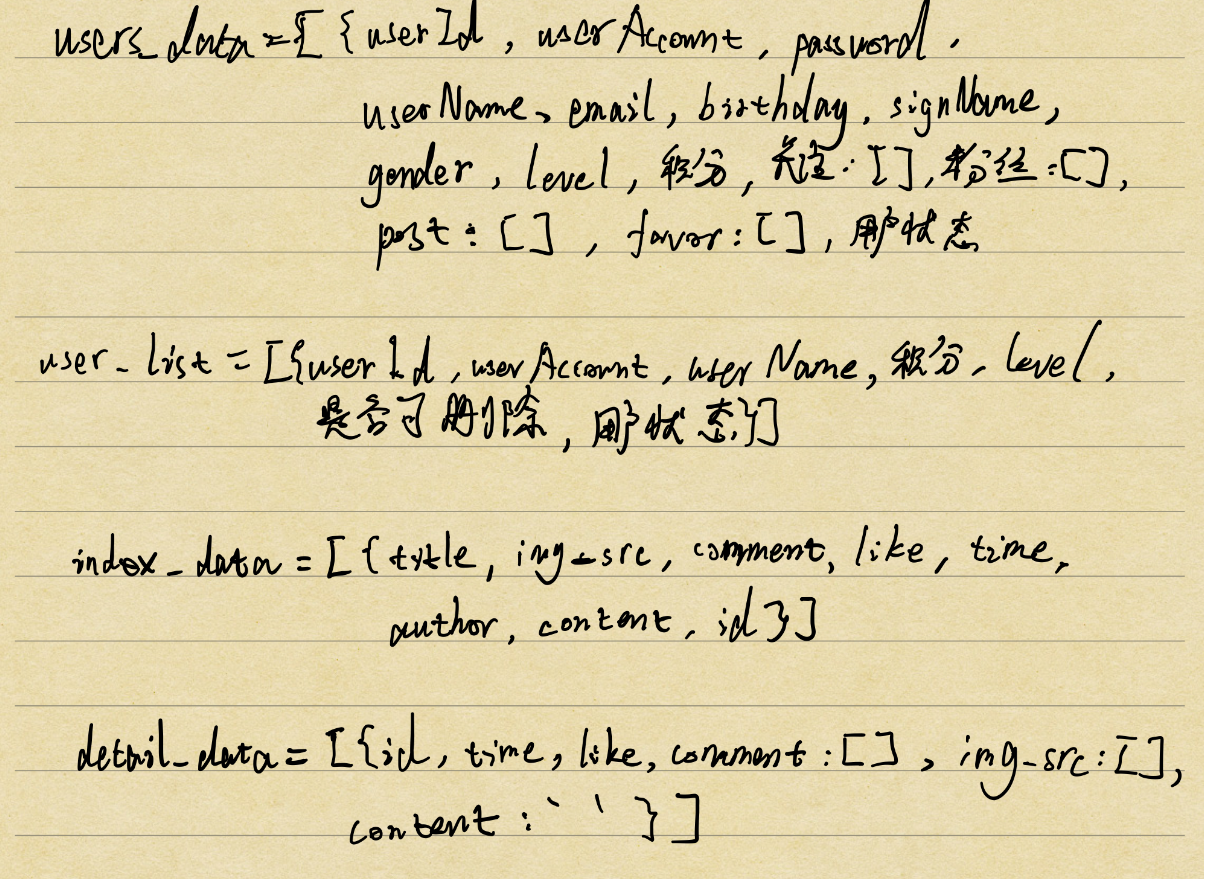 users_data=[{userId, userAccount, password,
userName、email, birthday, signName,
gender, level, 积分, 关注:[], 粉丝:[],
post:[], favor:[], 用户状态
user_list=[{userId, userAccount, userName, 积分, level,
是否可删除, 用户状态}]
index_data=[{title, img_src, comment, like, time,
author, content, id}]
detail_data=[{id, time, like, comment:[], img_src:[],
content:` ` }]